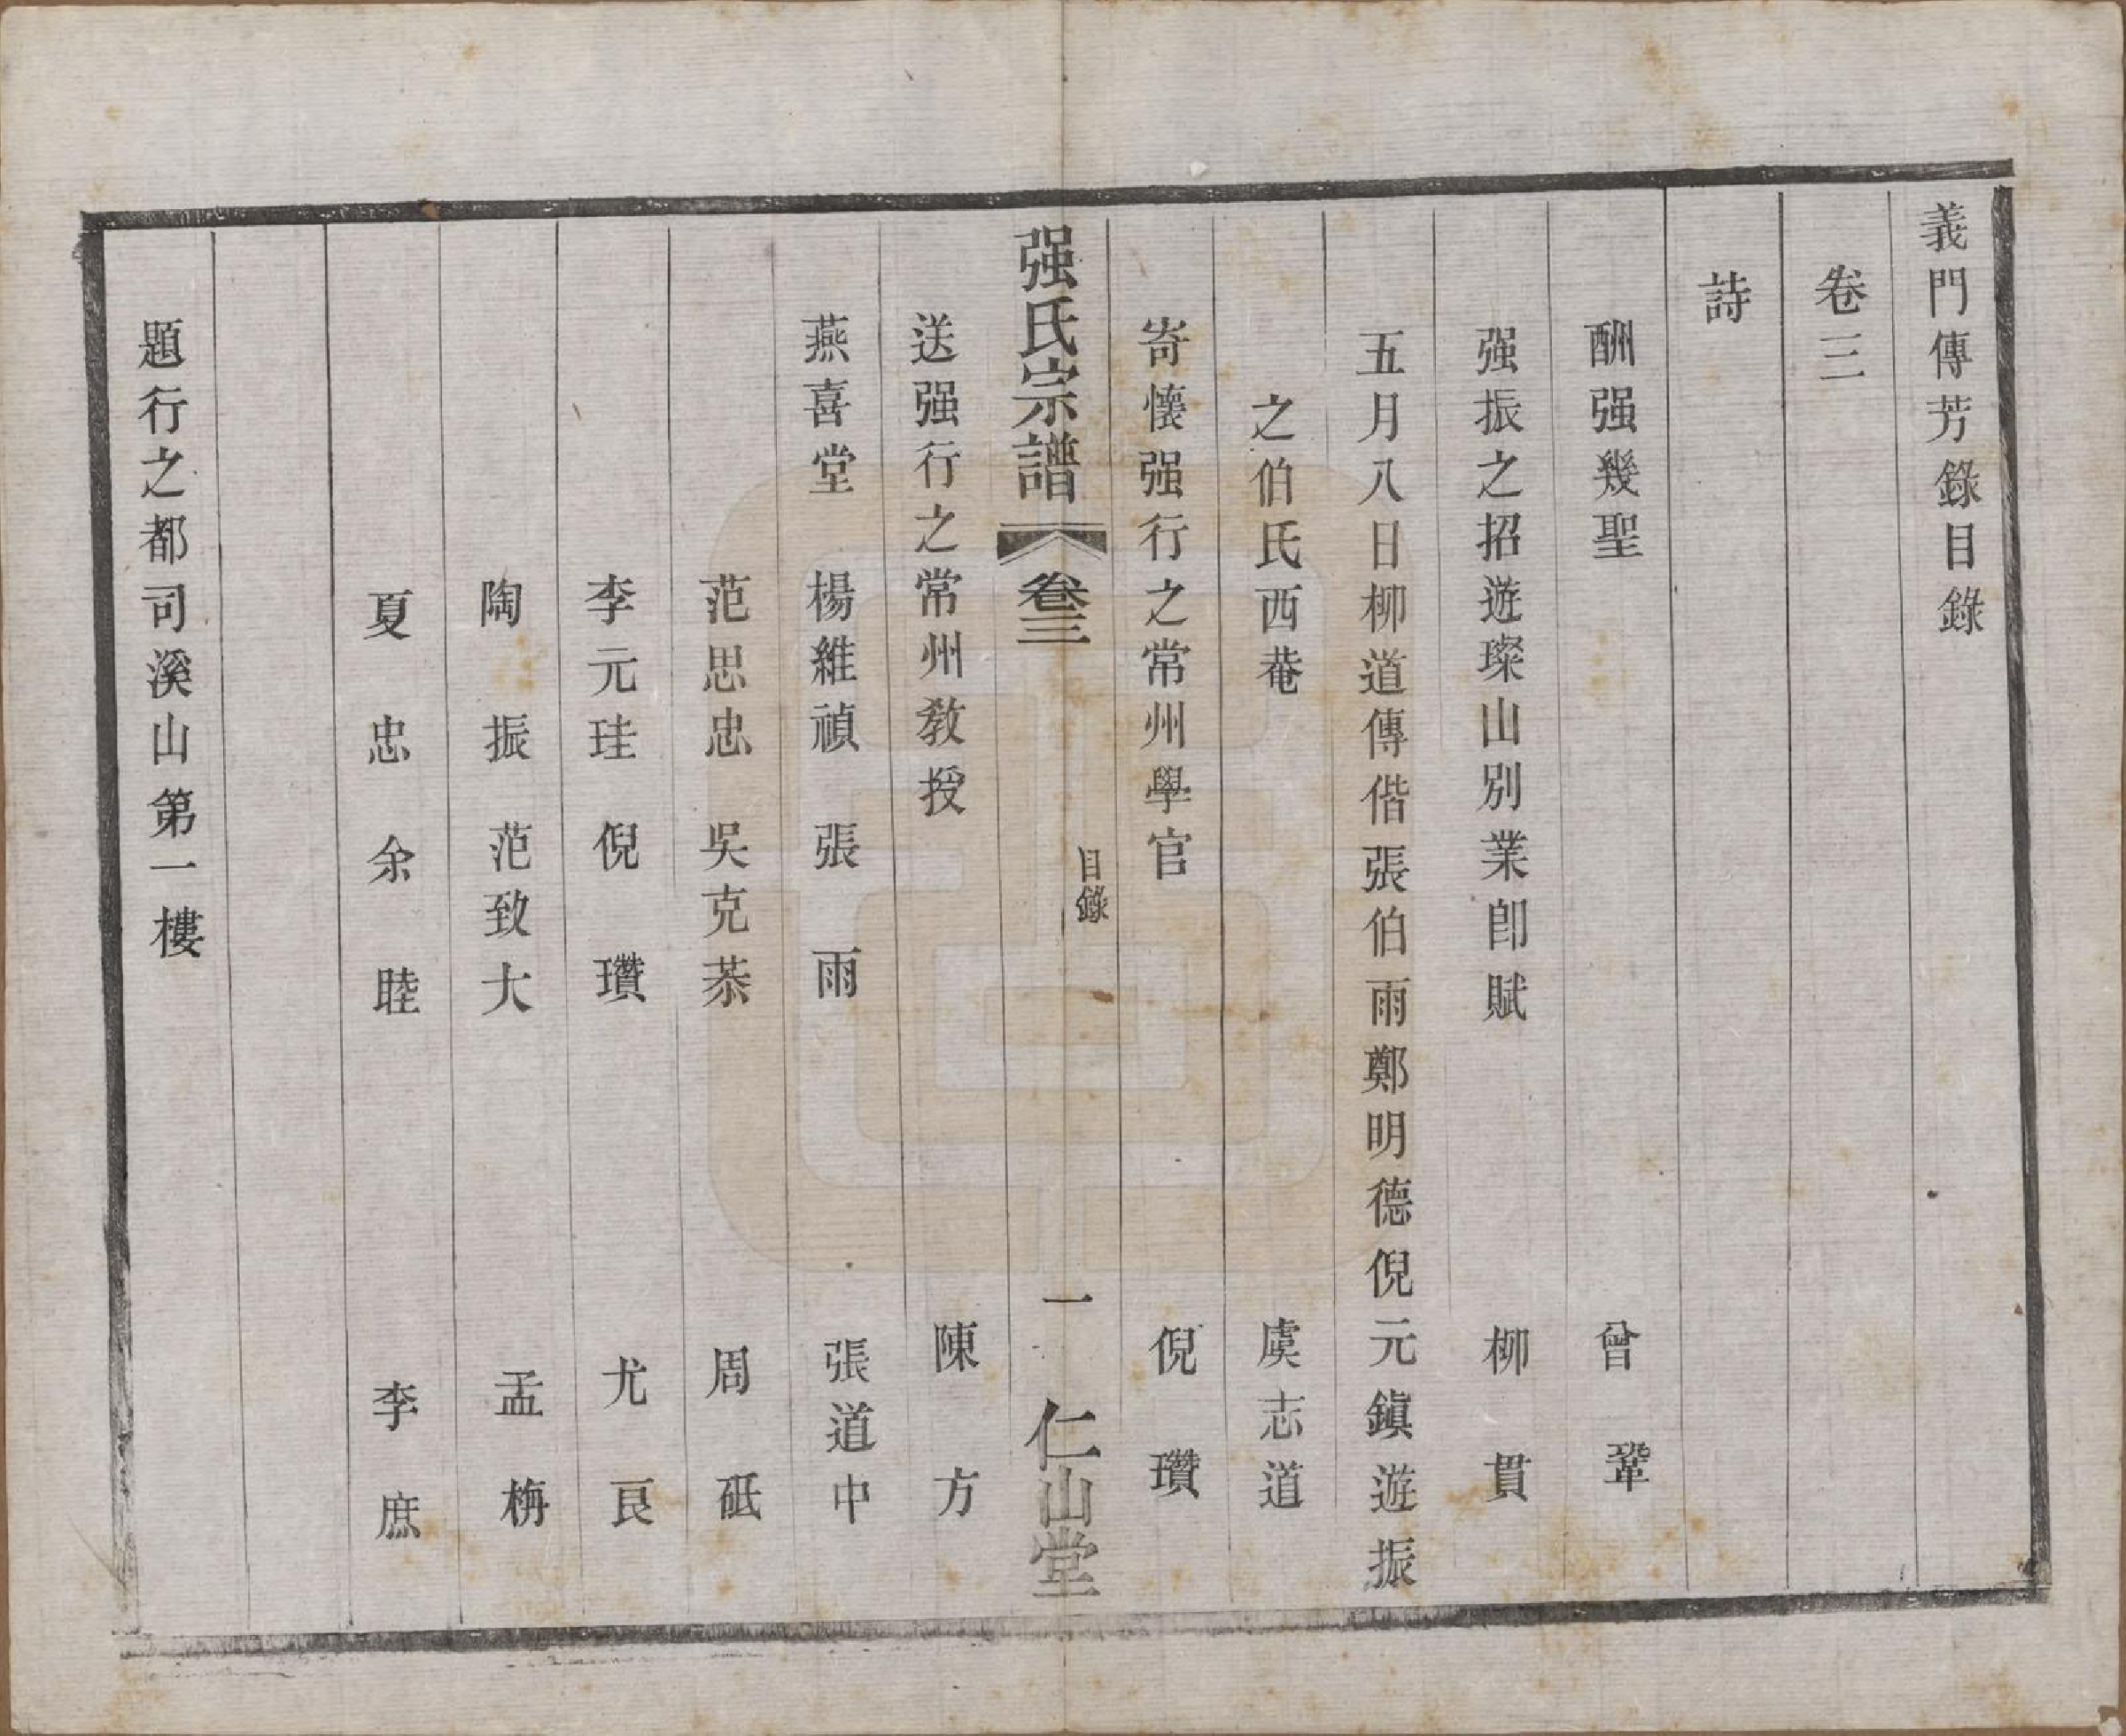 義門傳芳錄目錄
卷三
詩
酬强幾聖 曾鞏
强振之招遊璨山別業卽賦 柳貫
五月八日柳道傳偕張伯雨鄭明德倪元鎭遊振
之伯氏西菴 虞志道
寄懷强行之常州學官 倪瓚
强氏宗譜 卷三 目錄 一 仁山堂
送强行之常州敎授 陳方
燕喜堂 楊維禎 張雨 張道中
范思忠 吳克恭 周砥
李元珪 倪瓚 尤良
陶振 范致大 孟栴
夏忠 余睦 李庶
題行之都司溪山第一樓